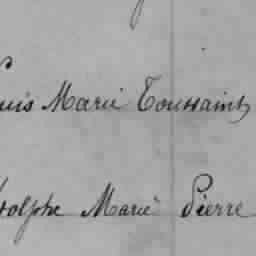 uis Marie Toussaint
dolphe Marie Pierre